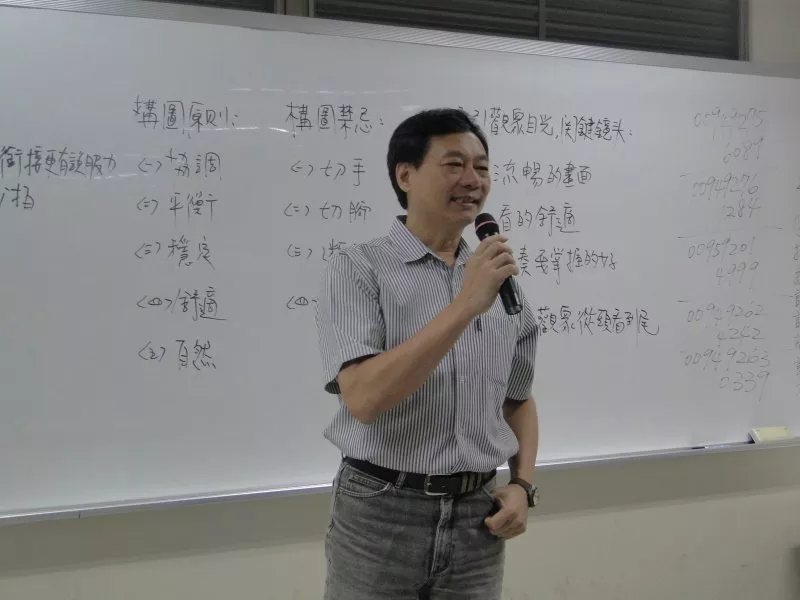 銜接更有說服力
構圖原則:
(一) 協調
(二) 平衡
(三) 穩定
(四) 舒適
(五) 自然
構圖禁忌:
(一) 切手
(二) 切腳
(三)
(四)
引觀眾目光,関鍵鏡头:
流暢的畫面
看的舒適
奏要掌握的好
觀眾從頭看到尾
6089
00949276
1284
00959201
4999
00949262
4242
00949263
0339